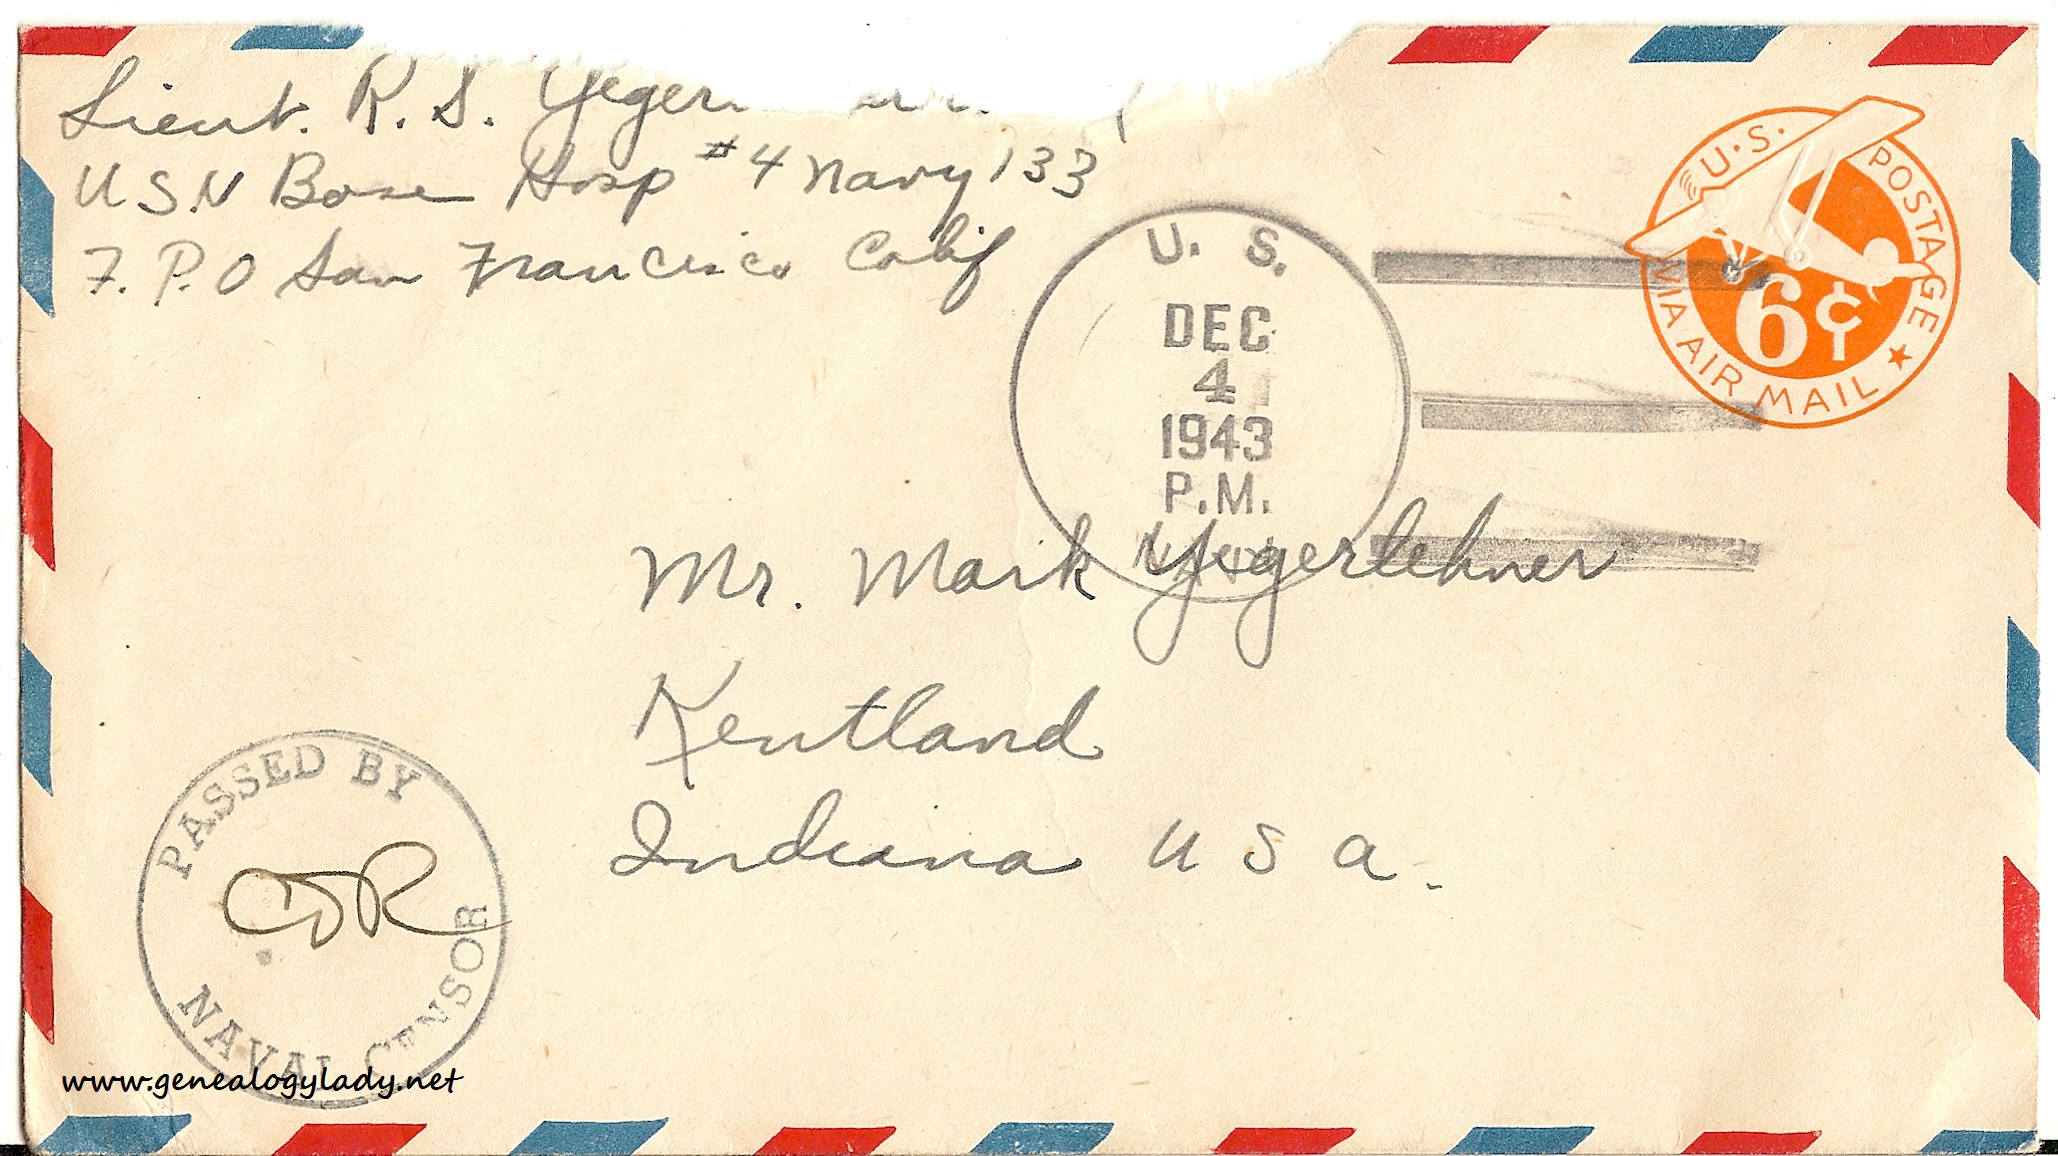 Lieut. R. S.
USN Base Hosp #4 Navy 133
F. P. O San Francisco Calif
U.S. POSTAGE
VIA AIR MAIL
6¢
U. S.
DEC
4
1943
P.M.
NAVY
Mr. Mark Yegerlehner
Kentland
Indiana U S A.
PASSED BY
CDR
NAVAL CENSOR
www.genealogylady.net